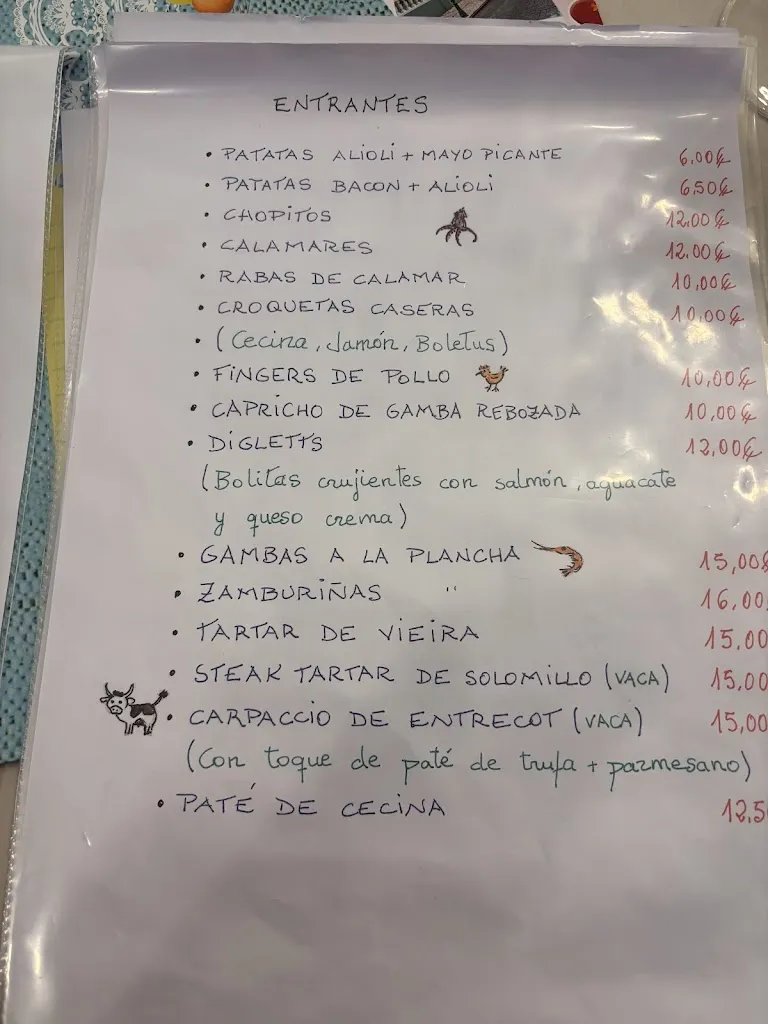 ENTRANTES
• PATATAS ALIOLI + MAYO PICANTE 6,00€
• PATATAS BACON + ALIOLI 6,50€
• CHOPITOS 12,00€
• CALAMARES 12,00€
• RABAS DE CALAMAR 10,00€
• CROQUETAS CASERAS 10,00€
• (Cecina, Jamón, Boletus)
• FINGERS DE POLLO 10,00€
• CAPRICHO DE GAMBA REBOZADA 10,00€
• DIGLETTS 12,00€
(Bolitas crujientes con salmón, aguacate
y queso crema)
• GAMBAS A LA PLANCHA 15,00€
• ZAMBURIÑAS " 16,00
• TARTAR DE VIEIRA 15,00
• STEAK TARTAR DE SOLOMILLO (VACA) 15,00
• CARPACCIO DE ENTRECOT (VACA) 15,00
(Con toque de paté de trufa + parmesano)
• PATÉ DE CECINA 12,5